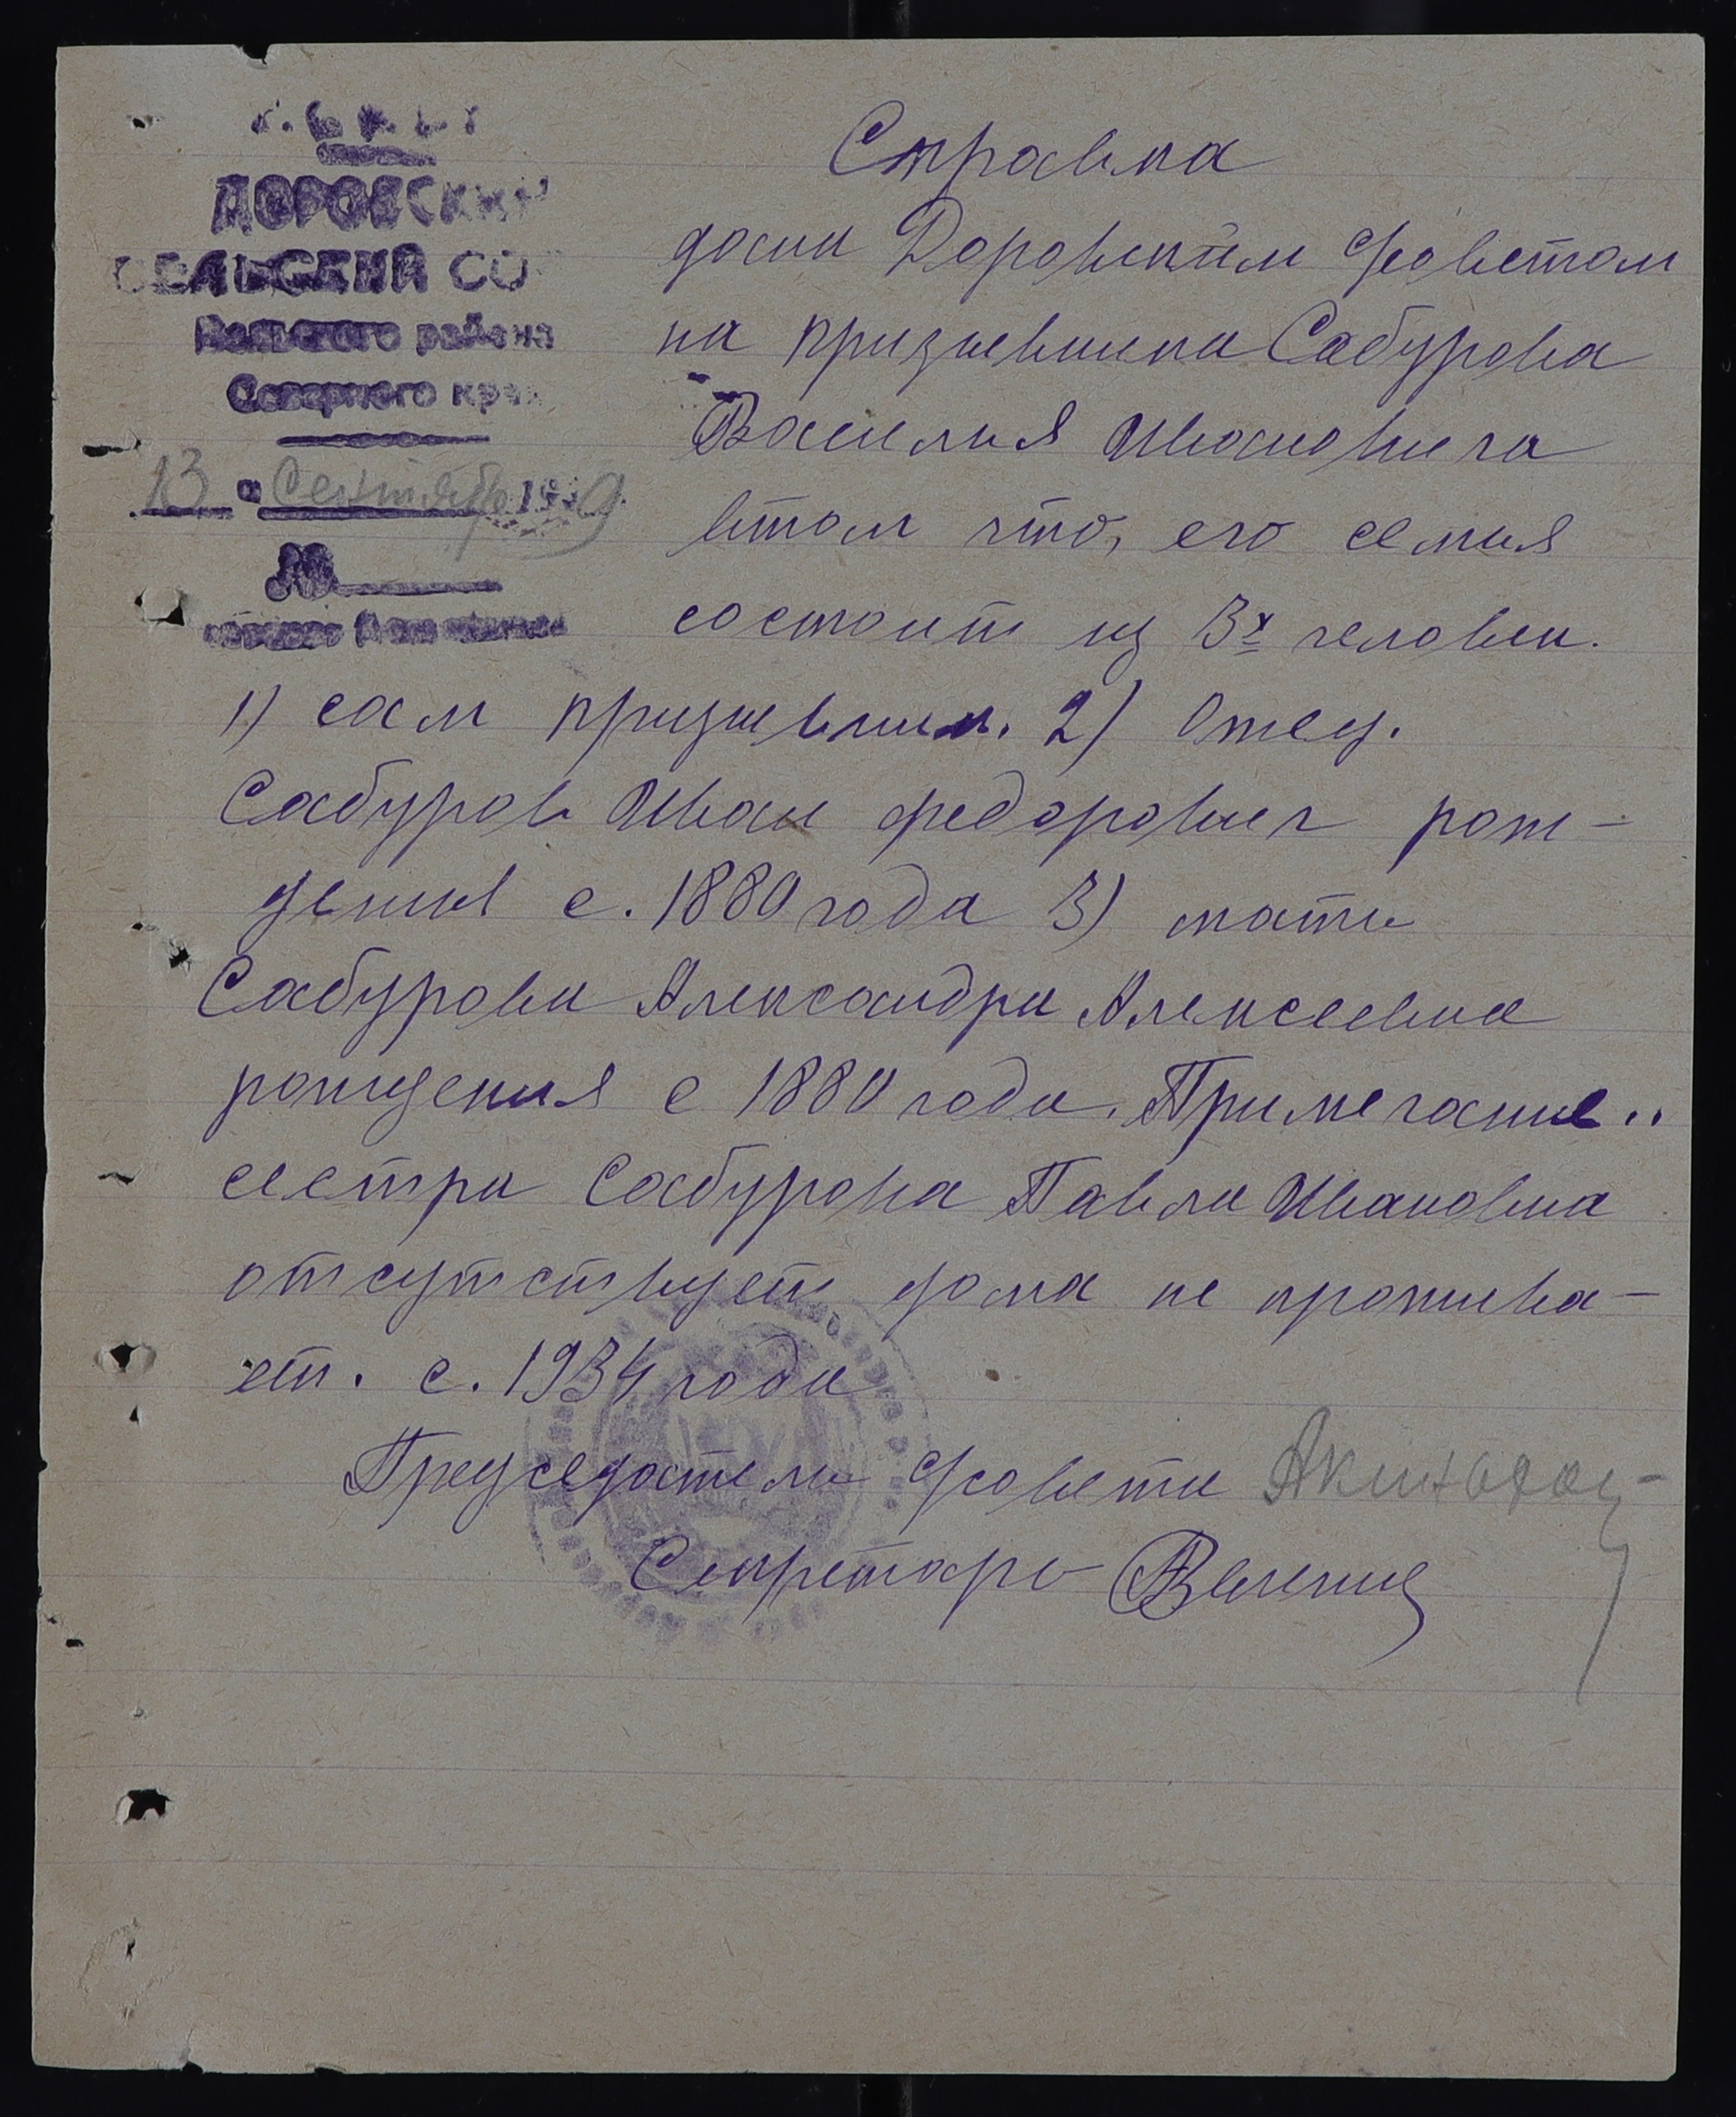 Р.С.Ф.С.Р
ДОРОВСКИЙ
СЕЛЬСКИЙ СО
района
Северного края
13 " Сентября 1939
№
Справка
дана Доровским с/советом
на призывника Сабурова
Василия Ивановича
втом что, его семья
состоит из 3х человек.
1) сам призывник. 2) Отец.
Сабуров Иван Федорович рож-
дения с. 1880 года 3) мать
Сабурова Александра Алексеевна
рождения с 1880 года. Примечание..
сестра Сабурова Павла Ивановна
отсутствует дома не прожива-
ет. с. 1934 года
Председатель с/совета
Секретарь